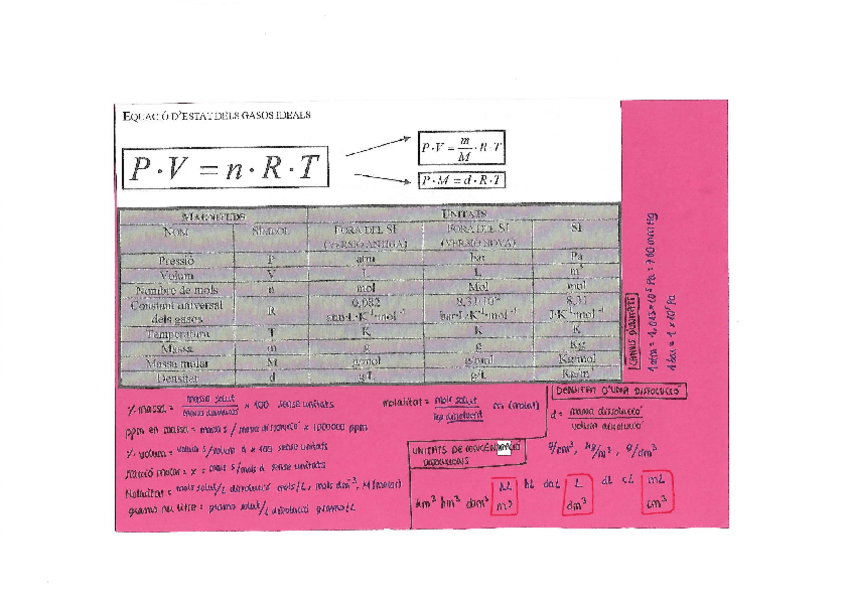 EQUACIÓ D'ESTAT DELS GASOS IDEALS
P·V = n·R·T
P·V = m/M ·R·T
P·M = d·R·T
MAGNITUDS UNITATS
NOM SÍMBOL FORA DEL SI (VERSIÓ ANTIGA) FORA DEL SI (VERSIÓ NOVA) SI
Pressió P atm bar Pa
Volum V L L m³
Nombre de mols n mol Mol mol
Constant universal dels gases R 0,082 atm·L·K⁻¹·mol⁻¹ 8,31·10⁻² bar·L·K⁻¹·mol⁻¹ 8,31 J·K⁻¹·mol⁻¹
Temperatura T K K K
Massa m g g Kg
Massa molar M g/mol g/mol Kg/mol
Densitat d g/L g/L Kg/m³
1 atm = 1,013 × 10⁵ Pa = 760 mmHg
1 bar = 1 × 10⁵ Pa
% massa = massa solut / massa dissolució × 100 sense unitats
ppm en massa = massa s / massa dissolució × 1000000 ppm
% volum = volum s/volum d × 100 sense unitats
fracció molar = x = mols s/mols d sense unitats
Molaritat = mols solut/L dissolució mols/L, mols dm⁻³, M (molar)
grams per litre = grams solut/L dissolució grams/L
molalitat = mols solut / kg dissolvent m (molal)
DENSITAT D'UNA DISSOLUCIÓ
d = massa dissolució / volum dissolució
g/cm³, kg/m³, g/dm³
UNITATS DE
hL daL L dL cL mL
km³ hm³ dam³ m³ dm³ cm³